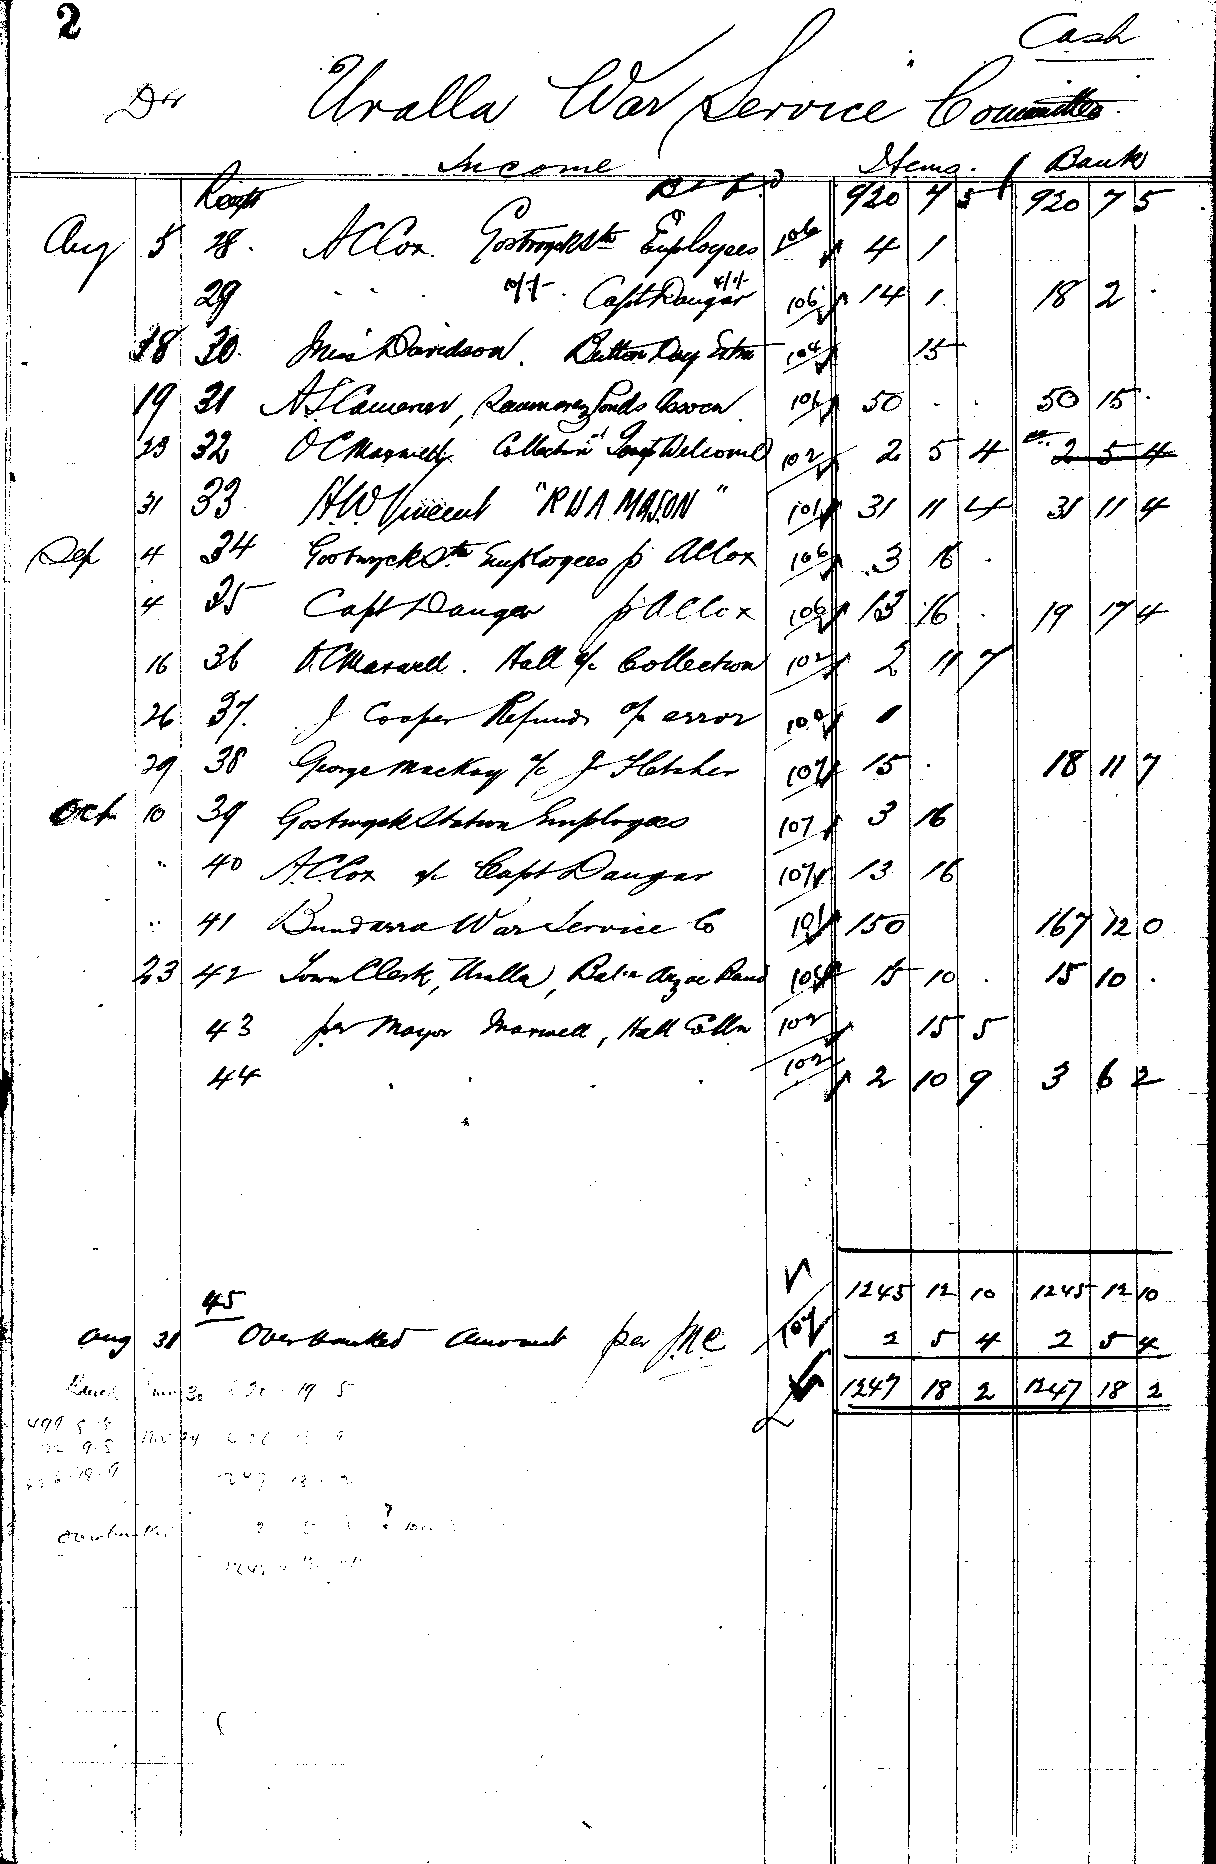 2
Cash
Dr Uralla War Service Committee
Income Items. Bank
Rcept B F D 920 7 5 920 7 5
Aug 5 28. A C Cox Gostwyck Stn Employees 106 4 1
29 " " Capt Dangar 106 14 1 18 2 .
18 30. Miss Davidson. Button Day Extra 104 15
19 31 A S Cameron, Saumarez Ponds Assocn 106 50 . . 50 15 .
23 32 O C Maxwell Collection at Welcome 102 2 5 4 2 5 4
31 33 H.W. Vincent "R U A MASON" 101 31 11 4 31 11 4
Sep 4 34 Gostwyck Stn Employees p A C Cox 106 3 16 .
4 35 Capt Dangar p A C Cox 106 13 16 . 19 17 4
16 36 O.C Maxwell. Hall a/c Collection 102 2 11 7
26 37. J Cooper Refund of error 100 1
29 38 George Mackay a/c J Fletcher 107 15 . 18 11 7
Oct 10 39 Gostwyck Station Employees 107 3 16
" 40 A.C. Cox a/c Capt Dangar 107 13 16
" 41 Bundarra War Service Co 101 150 167 12 0
23 42 Town Clerk, Uralla, Bal a Anzac Band 105 15 10 . 15 10 .
43 per Mayor Maxwell, Hall Colln 102 15 5
44 . . . . 102 2 10 9 3 6 2
1245 12 10 1245 12 10
45
Aug 31 Overbanked Amount per 104 2 5 4 2 5 4
1247 18 2 1247 18 2
30 19 5
499 5
9 5
1247 18 2